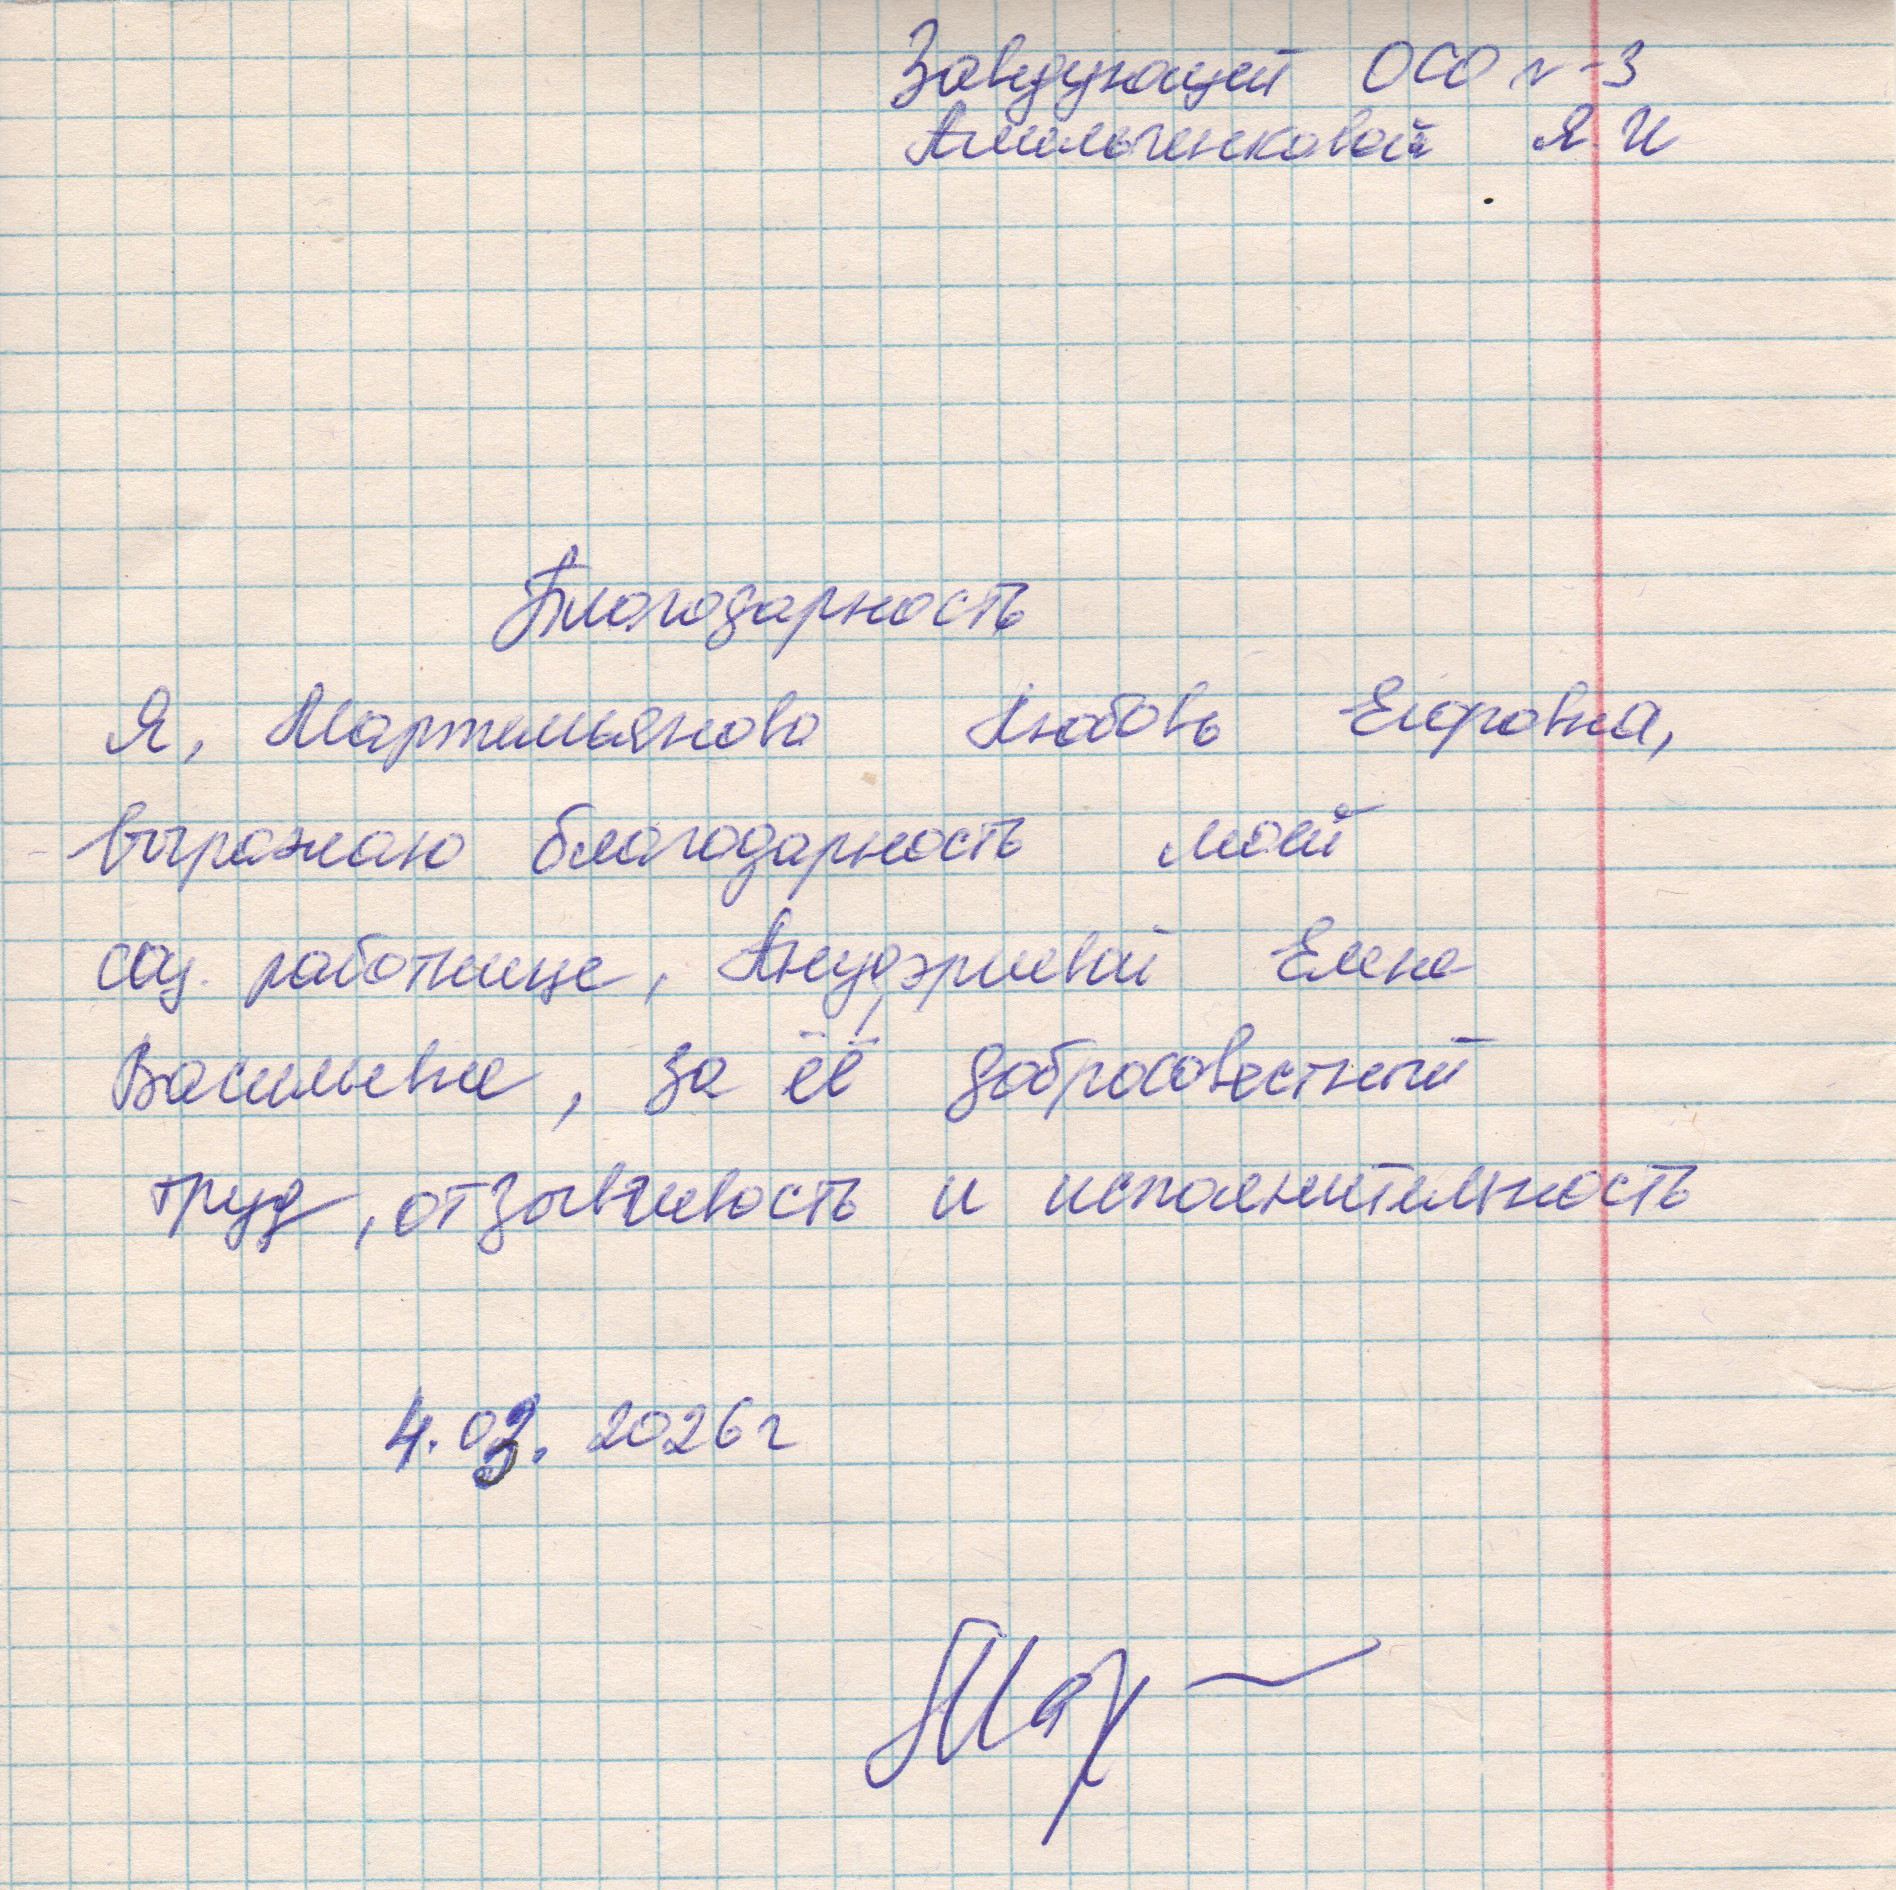 Заведующей ОСО №3
Амельченковой Я.И
Благодарность
Я, Мартемьянова Любовь Егоровна,
выражаю благодарность моей
соц. работнице, Елене
Васильевне, за её добросовестный
труд, отзывчивость и исполнительность
4.03. 2026г